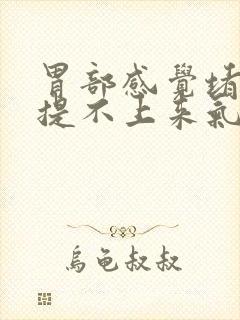 胃部感覺堵
提不上來氣
烏龜叔叔